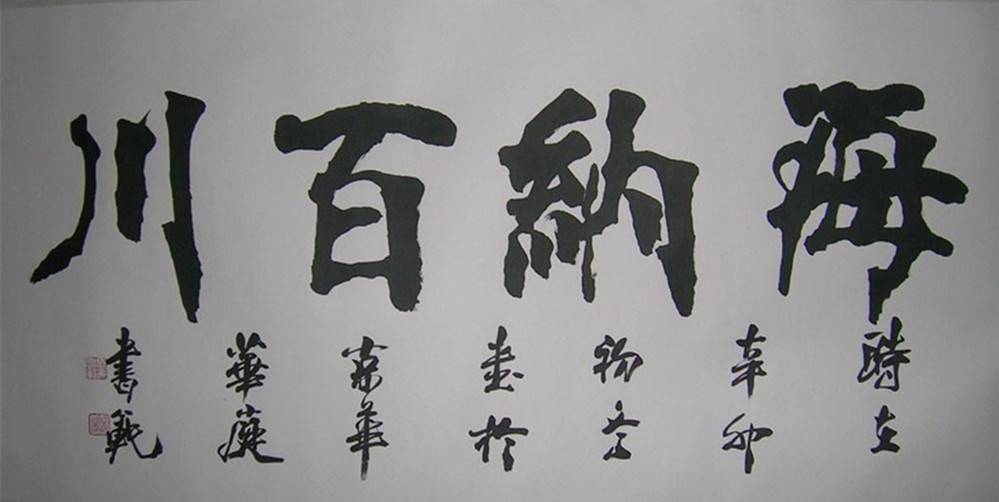 海納百川
時在
辛卯
初冬
書於
京華
華庭
書範